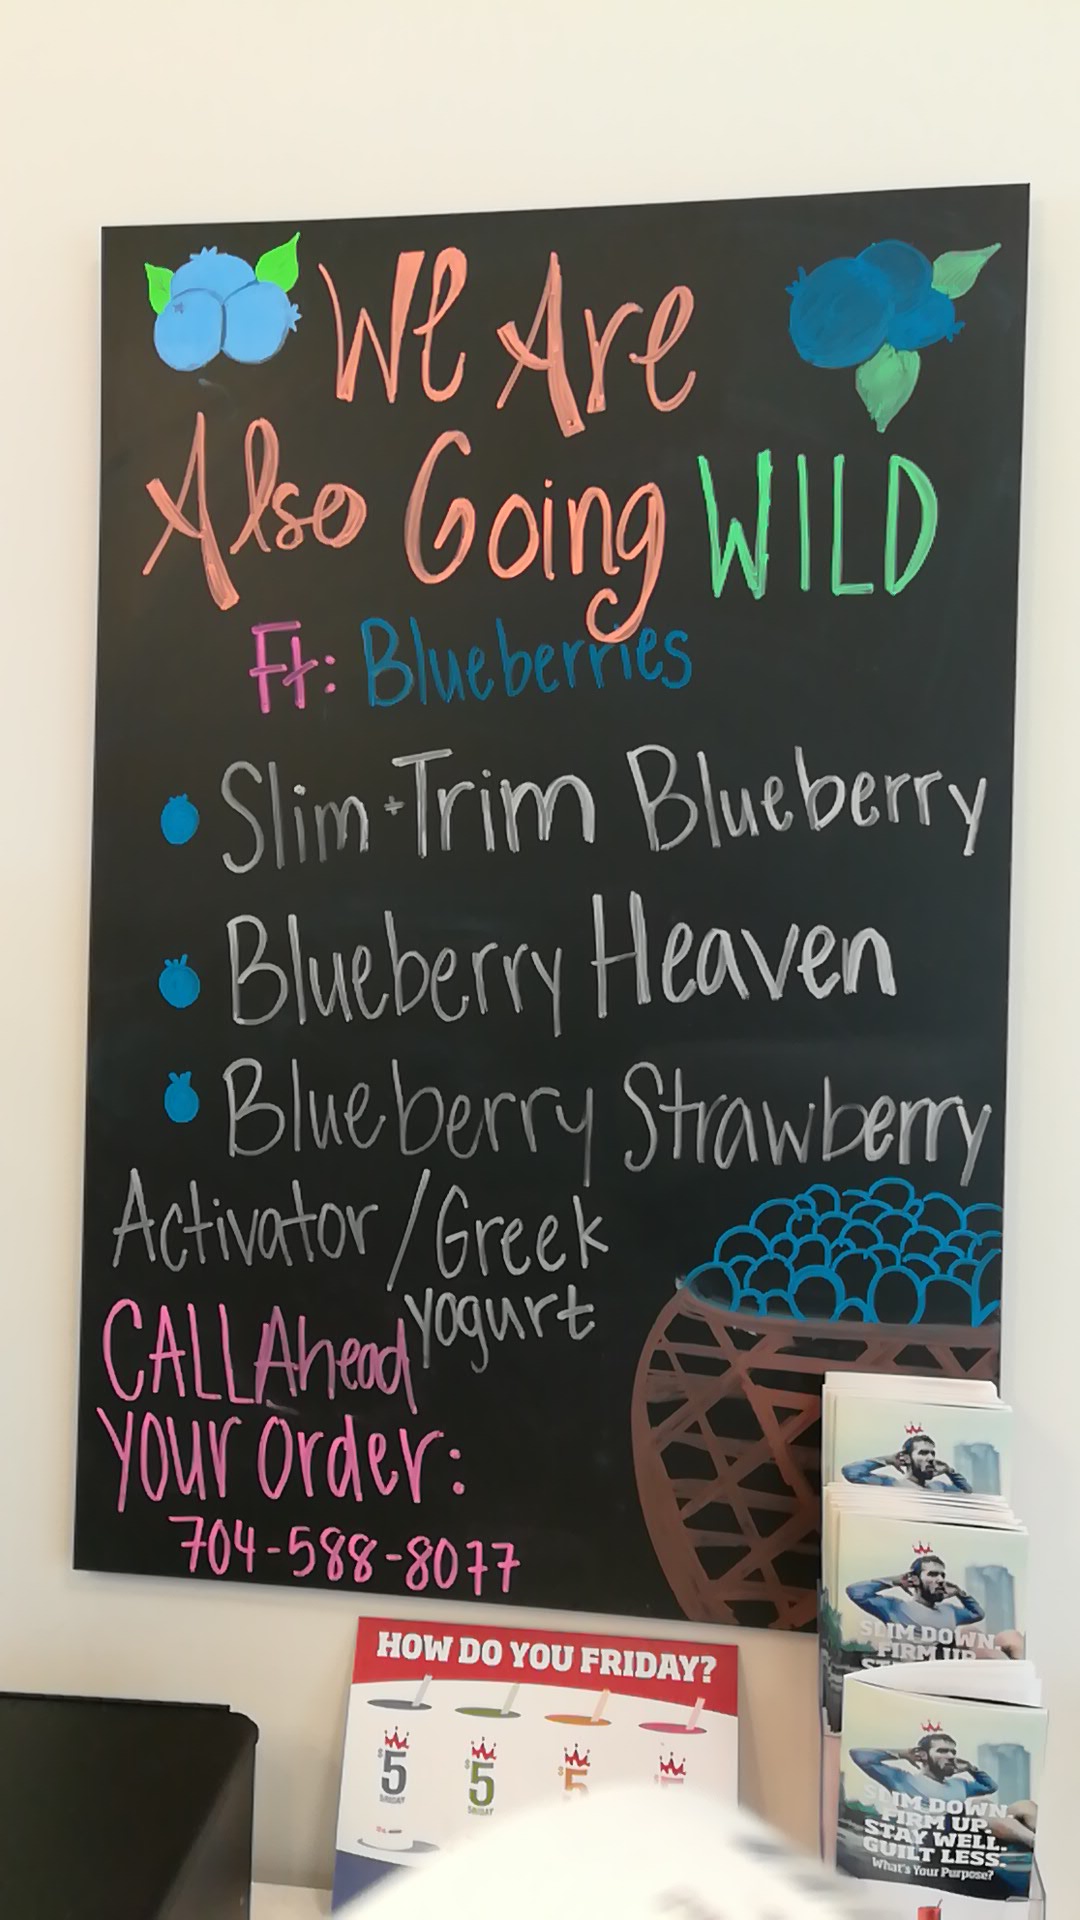 We Are
Also Going WILD
Ft: Blueberries
Slim-Trim Blueberry
Blueberry Heaven
Blueberry Strawberry
Activator/Greek
yogurt
CALL Ahead
your order:
704-588-8077
HOW DO YOU FRIDAY?
$5 $5 $5
SLIM DOWN.
FIRM UP.
SLIM DOWN.
FIRM UP.
STAY WELL.
GUILT LESS.
What's Your Purpose?